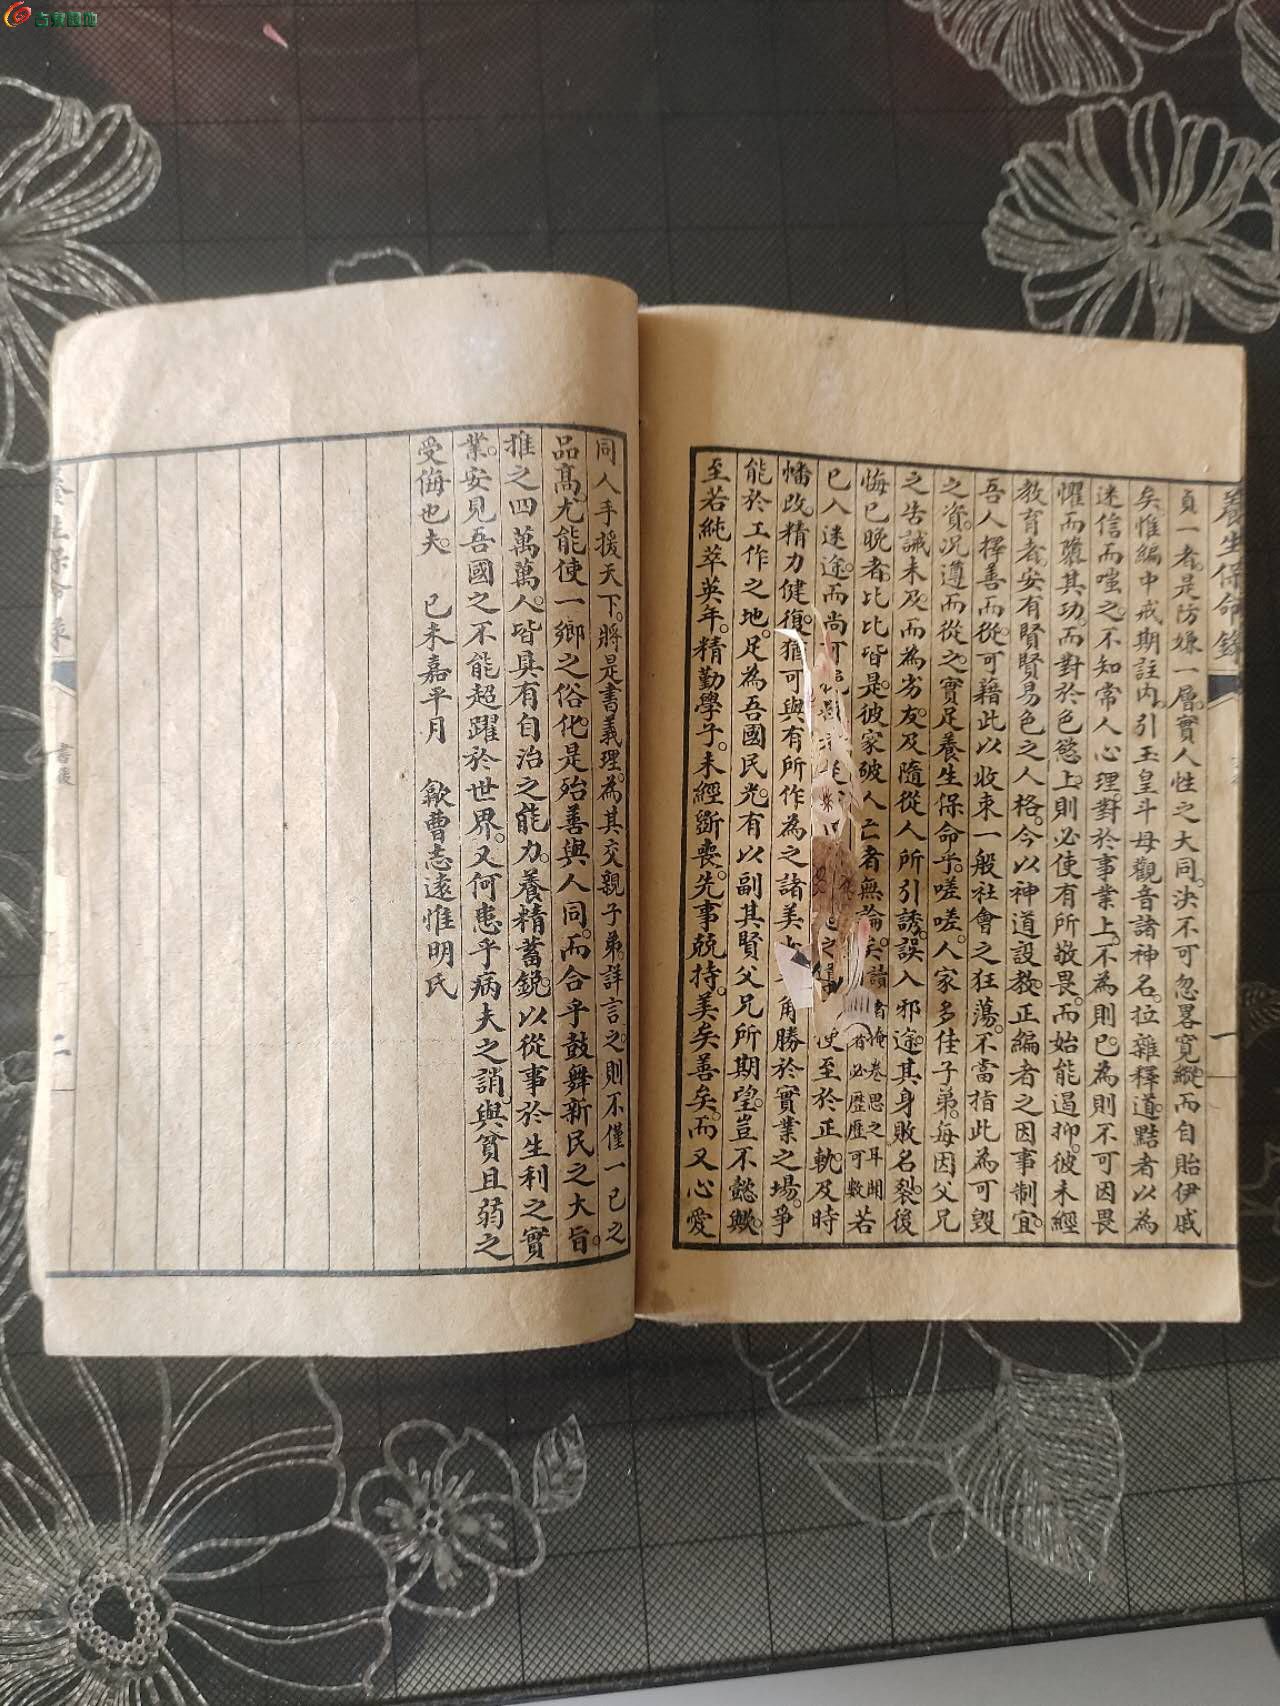 古泉園地
養生保命錄
一
貞一者。是防嫌一層。實人性之大同。決不可忽畧寬縱而自貽伊戚
矣。惟編中戒期註內。引玉皇斗母觀音諸神名。拉雜釋道。黠者以為
迷信而嗤之。不知常人心理。對於事業上。不為則已。為則不可因畏
懼而隳其功。而對於色慾上。則必使有所敬畏。而始能遏抑。彼未經
教育者。安有賢賢易色之人格。今以神道設教。正編者之因事制宜。
吾人擇善而從。可藉此以收束一般社會之狂蕩。不當指此為可毀
之資。況遵而從之。實足養生保命乎。嗟嗟。人家多佳子弟。每因父兄
之告誡未及。而為劣友及隨從人所引誘。誤入邪途。其身敗名裂。後
悔已晚者。比比皆是。彼家破人亡者無論矣。讀者掩卷思之耳聞者必歷歷可數若
已入迷途。而尚可 使至於正軌。及時
幡改。精力健復。猶可與有所作為之諸美 角勝於實業之場。爭
能於工作之地。足為吾國民光。有以副其賢父兄所期望。豈不懿歟。
至若純萃英年。精勤學子。未經斷喪。先事兢持。美矣善矣。而又心愛
同人。手援天下。將是書義理。為其交親子弟。詳言之。則不僅一己之
品高。尤能使一鄉之俗化。是殆善與人同。而合乎鼓舞新民之大旨。
推之四萬萬人。皆具有自治之能力。養精蓄銳。以從事於生利之實
業。安見吾國之不能超躍於世界。又何患乎病夫之誚。與貧且弱之
受侮也夫。 己未嘉平月 歙曹志遠惟明氏
養生保命錄
書後
二